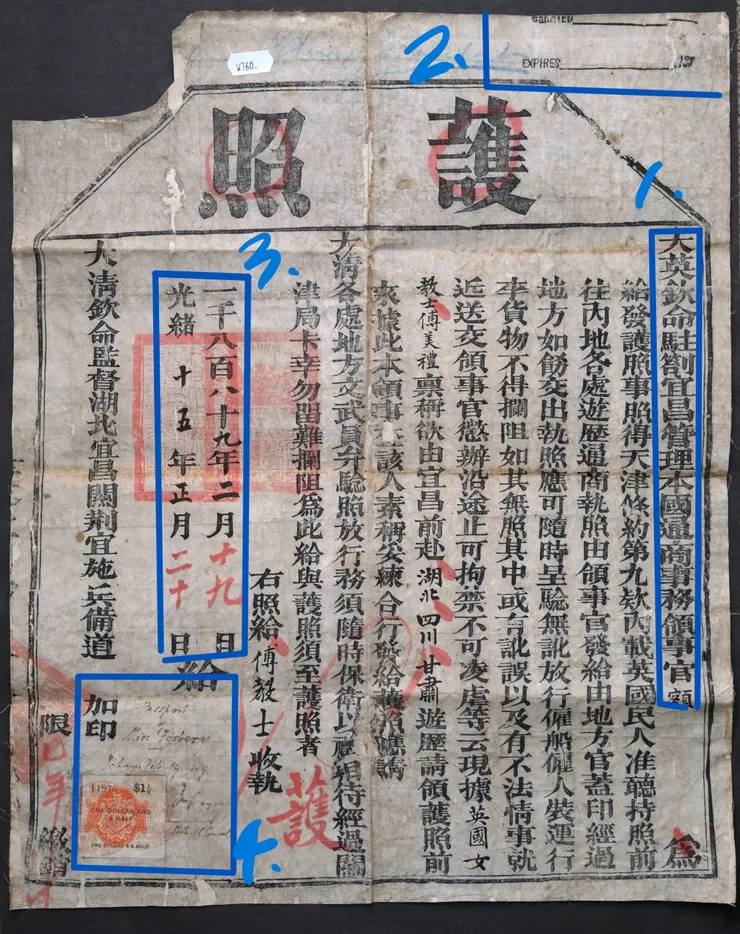 GRANTED
EXPIRES 187
¥760.
2.
1.
3.
4.
護照
大英欽命駐劄宜昌管理本國通商事務領事官額 為
給發護照事照得天津條約第九欵內載英國民人准聽持照前
往內地各處遊歷通商執照由領事官發給由地方官蓋印經過
地方如飭交出執照應可隨時呈驗無訛放行僱船僱人裝運行
李貨物不得攔阻如其無照其中或有訛誤以及有不法情事就
近送交領事官懲辦沿途止可拘禁不可凌虐等云現據英國女
教士傅美禮禀稱欲由宜昌前赴湖北四川甘肅遊歷請領護照前
來據此本領事該人素稱妥練合行發給護照應請
大清各處地方文武員弁驗照放行務須隨時保衛以禮相待經過關
津局卡幸勿留難攔阻為此給與護照須至護照者
右照給傅教士收執
護
一千八百八十九年二月十九日
光緒十五年正月二十日
給
大清欽命監督湖北宜昌關荊宜施兵備道
加印
限年繳銷
Passport
Miss
Ichang Feb 19
11976 $1½
ONE DOLLAR AND
A HALF
ONE DOLLAR & A HALF